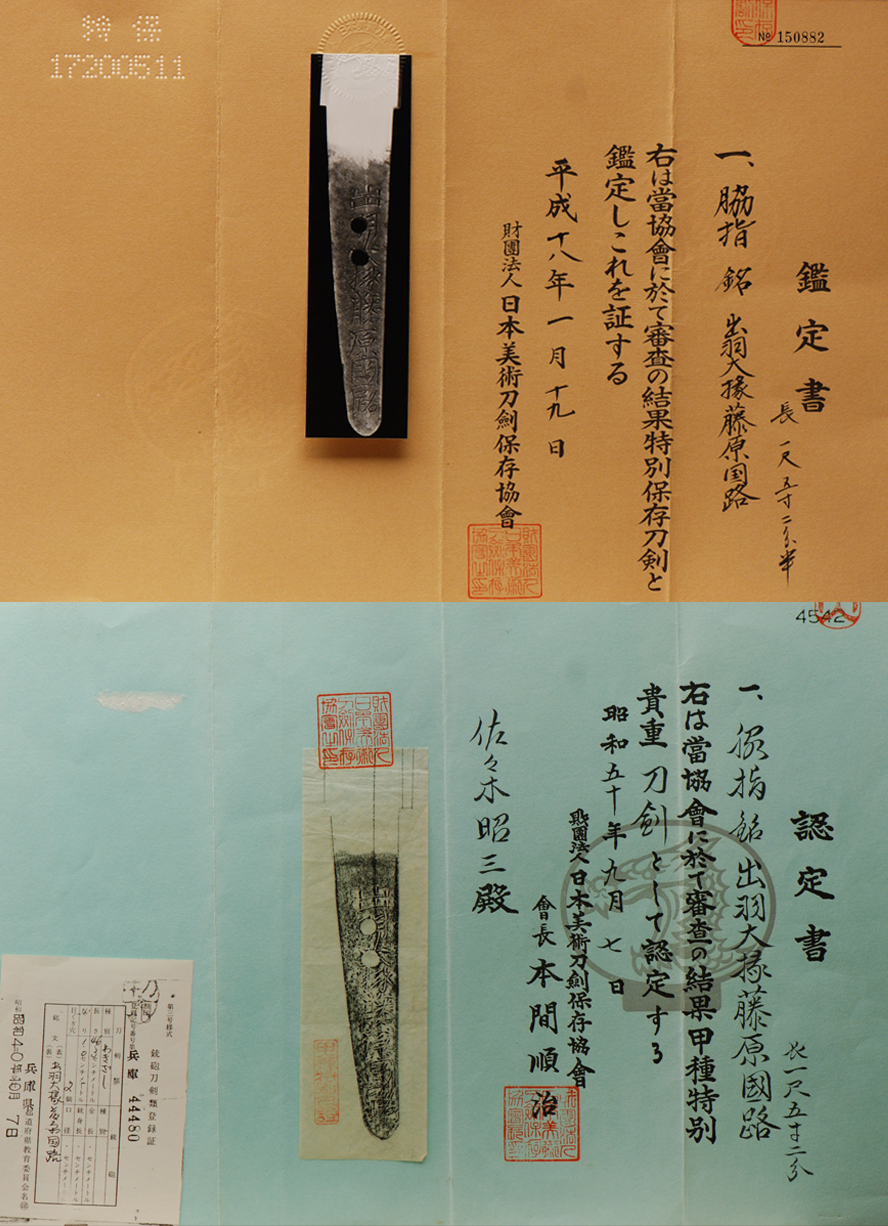 特保
17200511
№ 150882
鑑定書
長一尺五寸二分半
一、脇指 銘 出羽大掾藤原国路
右は當協會に於て審査の結果特別保存刀劍と
鑑定しこれを証する
平成十八年一月十九日
財團法人日本美術刀劍保存協會
4542
認定書
長一尺五寸二分
一、脇指 銘 出羽大掾藤原國路
右は當協會に於て審査の結果甲種特別
貴重刀劍として認定する
昭和五十年九月七日
財團法人日本美術刀劍保存協會
會長 本間順治
佐々木昭三殿
第三号様式
銃砲刀剣類登録証
兵庫 44480
刀剣類
種別 わきざし
長さ
センチメートル
銘文
出羽大掾藤原国路
昭和40年10月7日
兵庫県
都道府県教育委員会名